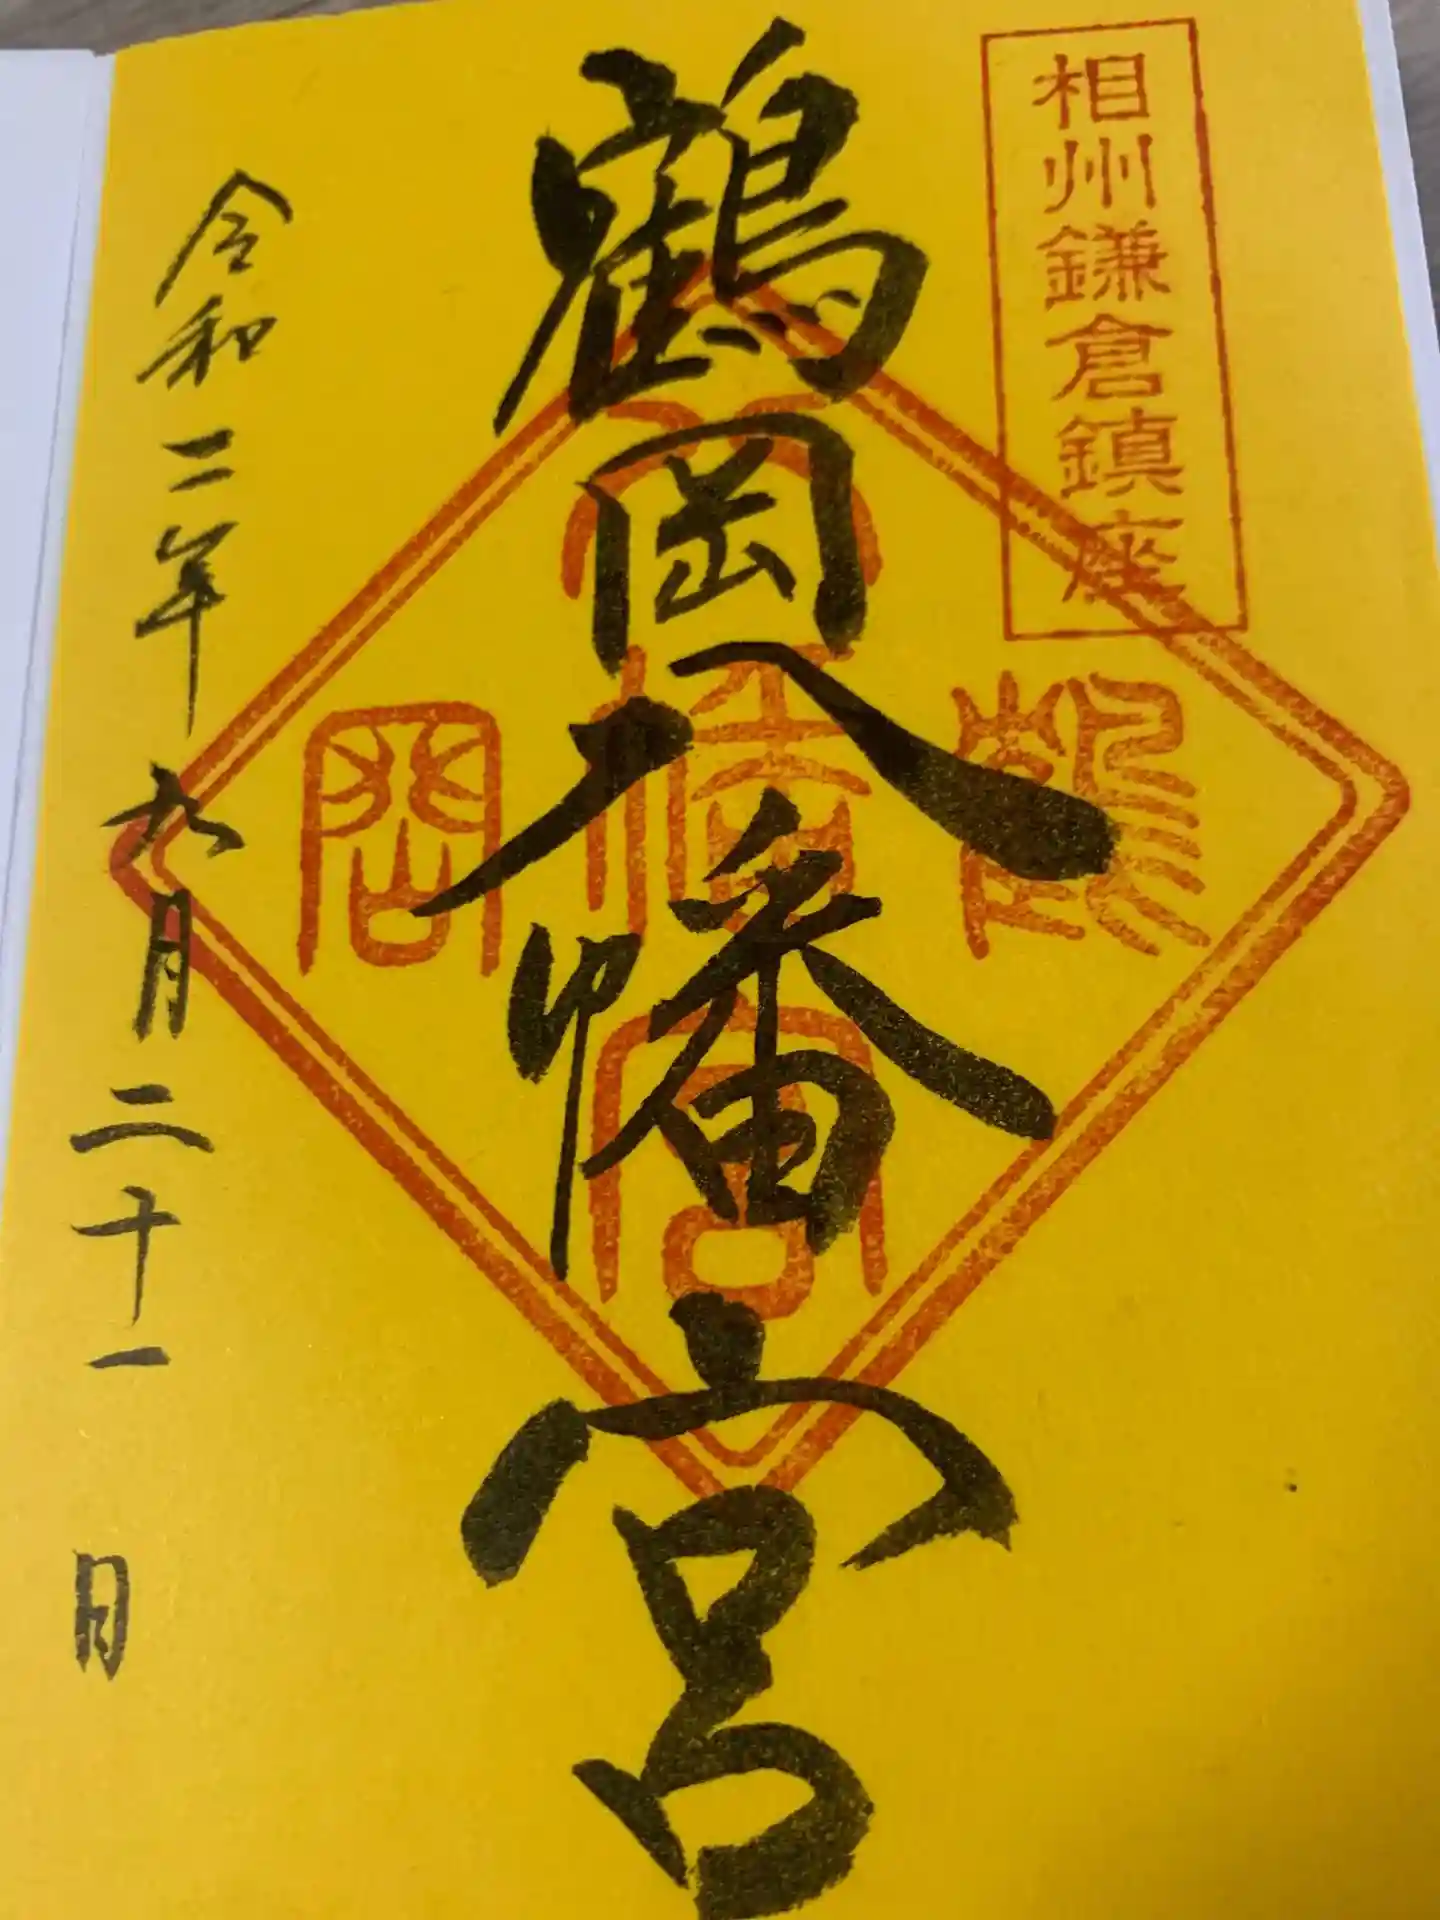 相州鎌倉鎮座
鶴岡八幡宮
令和二年九月二十一日